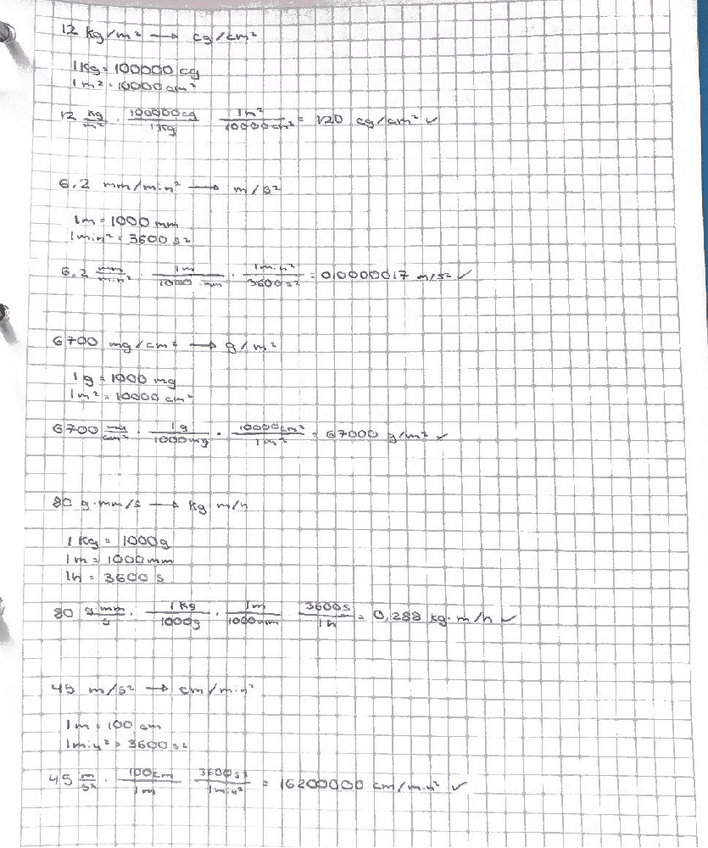 12 kg/m² → cg/cm²
1Kg = 100000 cg
1m² = 10000 cm²
12 kg/m² · 100000cg/1Kg · 1m²/10000cm² = 120 cg/cm² ✓
6,2 mm/min² → m/s²
1m = 1000 mm
1min² = 3600 s²
6,2 mm/min² · 1m/1000 mm · 1min²/3600s² = 0,0000017 m/s² ✓
6700 mg/cm² → g/m²
1g = 1000 mg
1m² = 10000 cm²
6700 mg/cm² · 1g/1000mg · 10000cm²/1m² = 67000 g/m² ✓
80 g·mm/s → kg·m/h
1 Kg = 1000g
1m = 1000mm
1h = 3600 s
80 g·mm/s · 1Kg/1000g · 1m/1000mm · 3600s/1h = 0,288 kg·m/h ✓
45 m/s² → cm/min²
1m = 100 cm
1min² = 3600 s²
45 m/s² · 100cm/1m · 3600s²/1min² = 16200000 cm/min² ✓